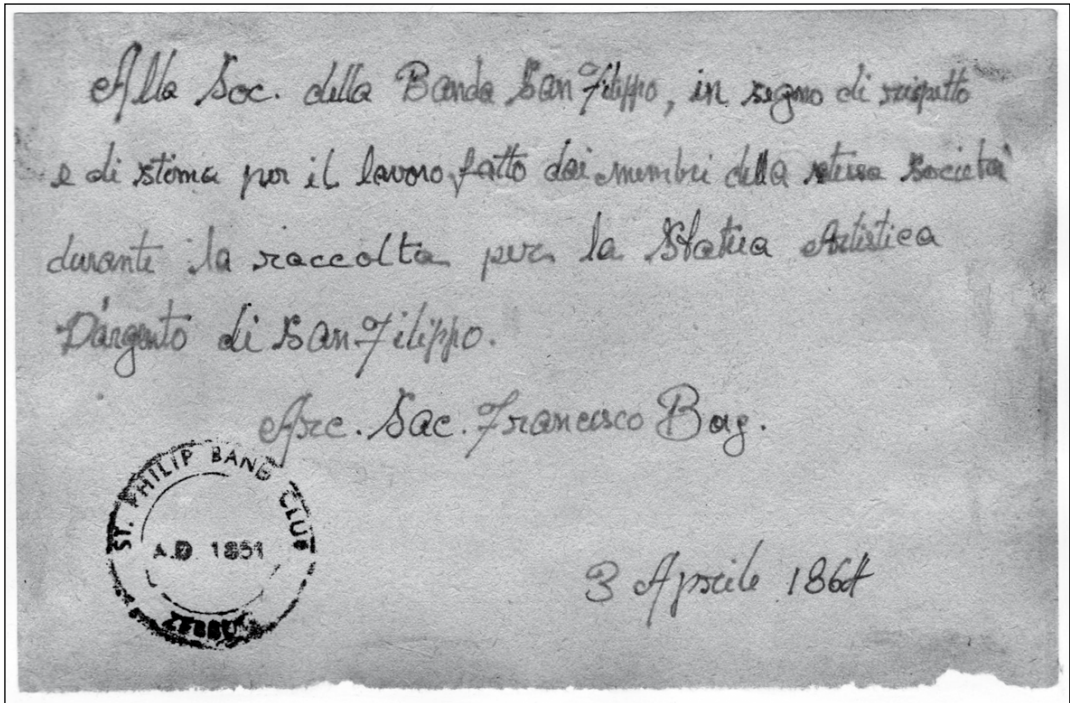 Alla Soc. della Banda San Filippo, in segno di rispetto
e di stima per il lavoro fatto dai membri della stessa Società
durante la raccolta per la Statua Artistica
D'argento di San Filippo.
Arc. Sac. Francesco Bag.
ST. PHILIP BAND CLUB
A.D. 1851
ZEBBUG
3 Aprile 1864